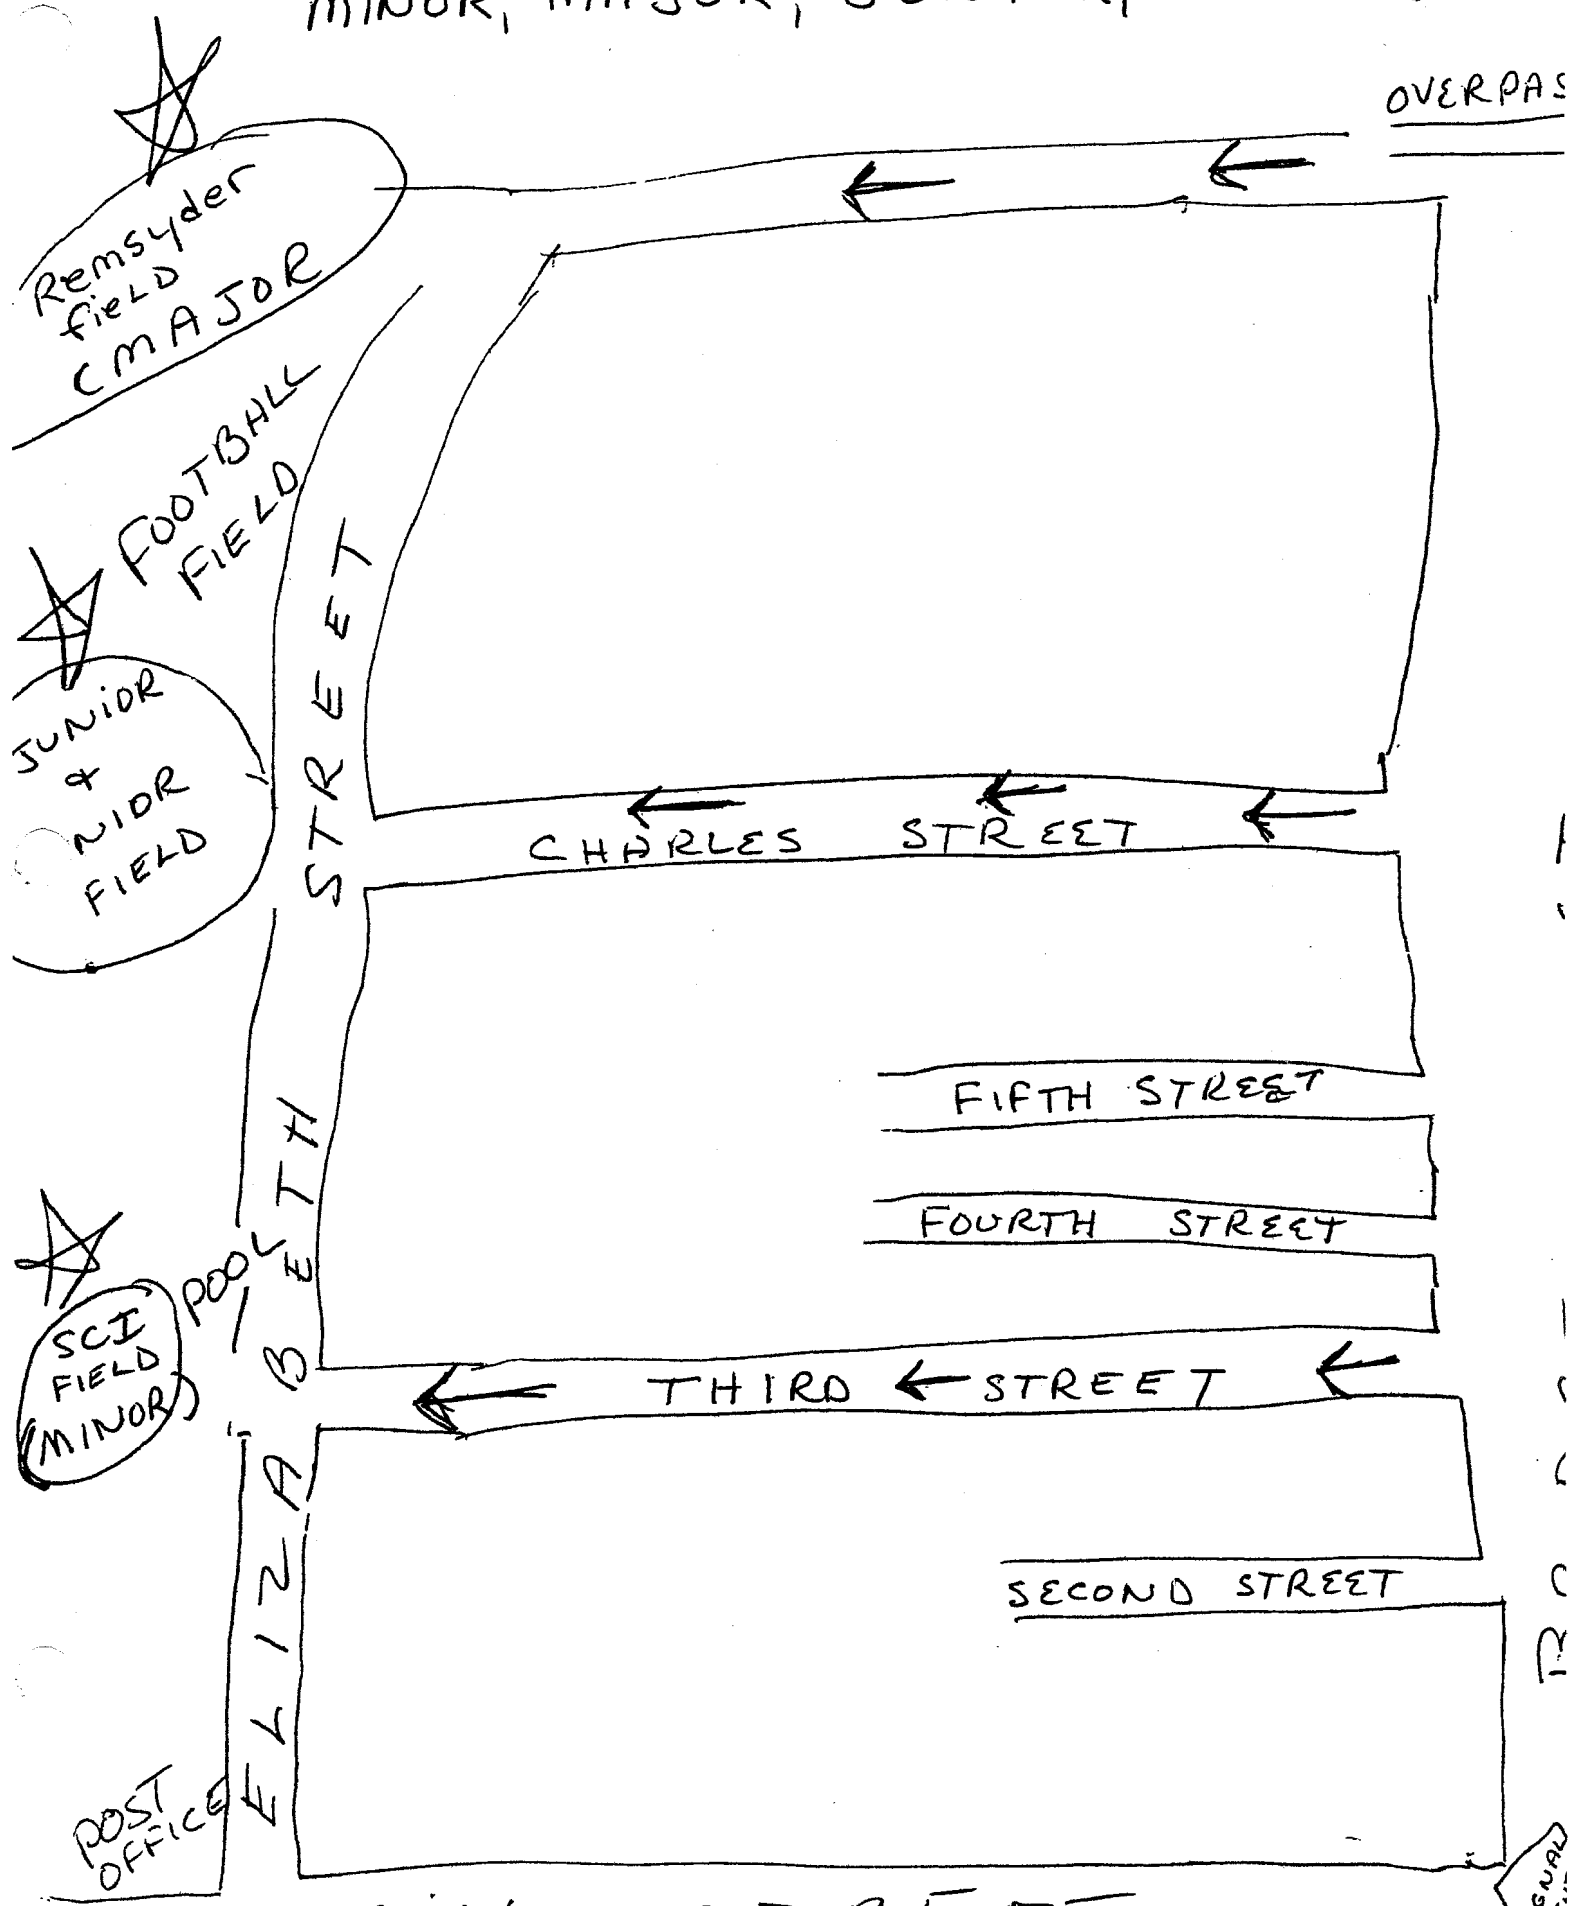 MINOR, MAJOR,
OVERPAS
Remsyder
field
CMAJOR
FOOTBALL
FIELD
JUNIOR
&
NIOR
FIELD
STREET
CHARLES STREET
FIFTH STREET
FOURTH STREET
POOL
SCI
FIELD
(MINOR)
THIRD STREET
ELIZABETH
SECOND STREET
POST
OFFICE
GNAL